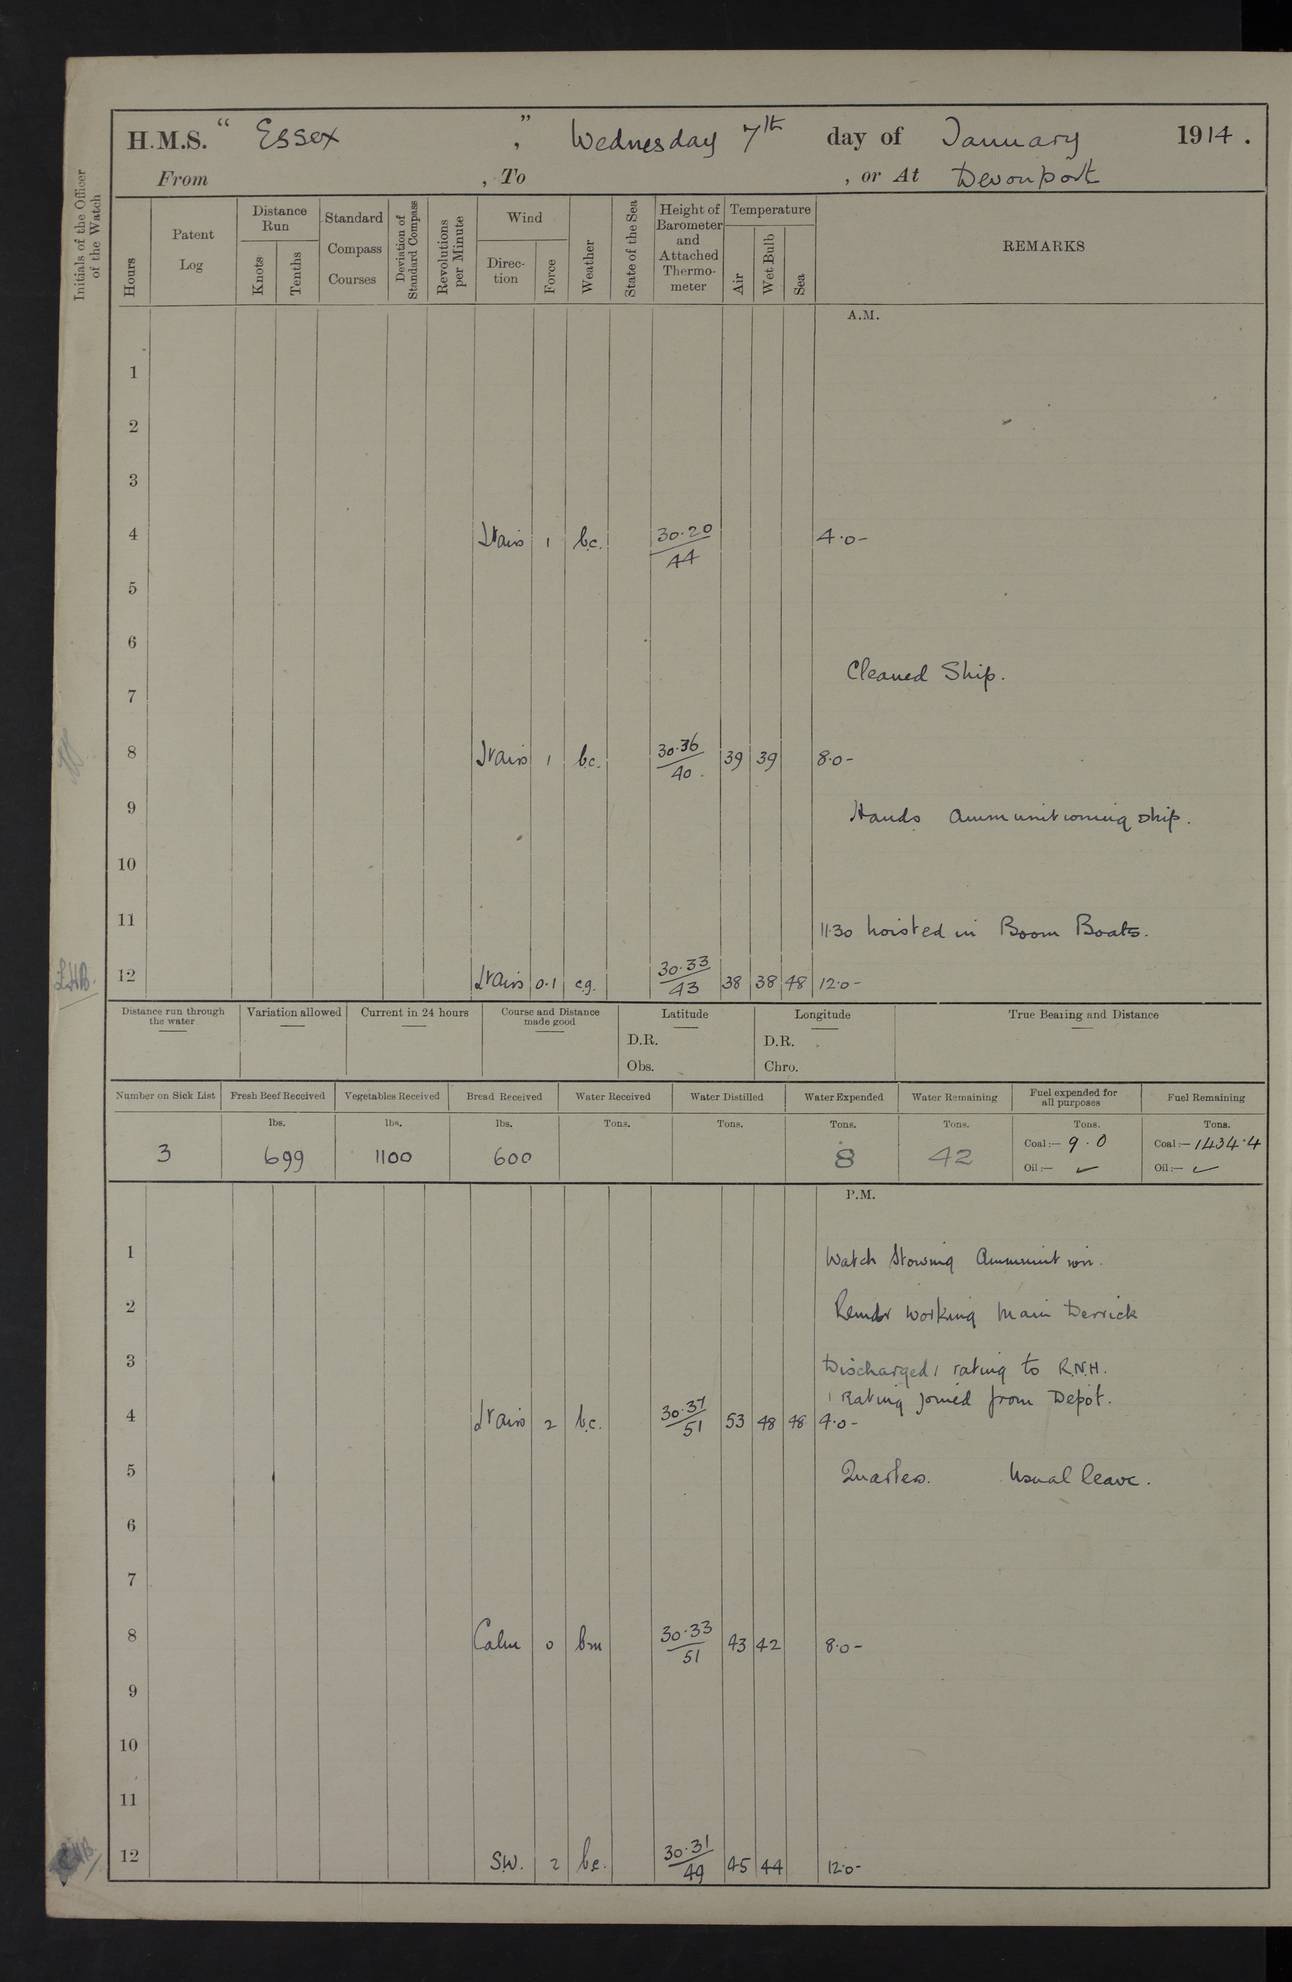 H.M.S. “ Essex ”, Wednesday 7th day of January 1914.
From , To , or At Devonport
Initials of the Officer of the Watch
Hours
Patent Log
Distance Run
Knots
Tenths
Standard Compass Courses
Deviation of Standard Compass
Revolutions per Minute
Wind
Direction
Force
Weather
State of the Sea
Height of Barometer and Attached Thermometer
Temperature
Air
Wet Bulb
Sea
REMARKS
A.M.
1
2
3
4 Lt airs 1 b.c. 30.20/44 4.0-
5
6
Cleaned Ship.
7
8 Lt airs 1 b.c. 30.36/40. 39 39 8.0-
9 Hands ammunitioning ship.
10
11 11.30 hoisted in Boom Boats.
12 Lt airs 0.1 c.g. 30.33/43 38 38 48 12.0-
Distance run through the water
Variation allowed
Current in 24 hours
Course and Distance made good
Latitude
D.R.
Obs.
Longitude
D.R.
Chro.
True Bearing and Distance
Number on Sick List Fresh Beef Received Vegetables Received Bread Received Water Received Water Distilled Water Expended Water Remaining Fuel expended for all purposes Fuel Remaining
lbs. lbs. lbs. Tons. Tons. Tons. Tons. Tons. Tons.
3 699 1100 600 8 42 Coal:— 9.0 Coal:— 1434.4
Oil:— ✓ Oil:— ✓
P.M.
1 Watch Stowing Ammunition.
2 Remdr working Main Derrick
3 Discharged 1 rating to R.N.H.
1 Rating joined from Depôt.
4 Lt airs 2 b.c. 30.37/51 53 48 48 4.0-
5 Quarters. Usual leave.
6
7
8 Calm 0 bm 30.33/51 43 42 8.0-
9
10
11
12 S.W. 2 b.c. 30.31/49 45 44 12.0-